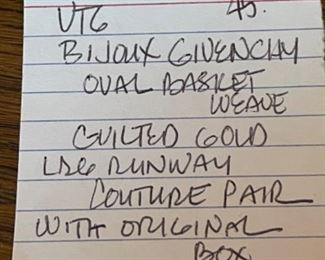 VTG 45.
BIJOUX GIVENCHY
OVAL BASKET
WEAVE
QUILTED GOLD
LRG RUNWAY
COUTURE PAIR
WITH ORIGINAL
BOX